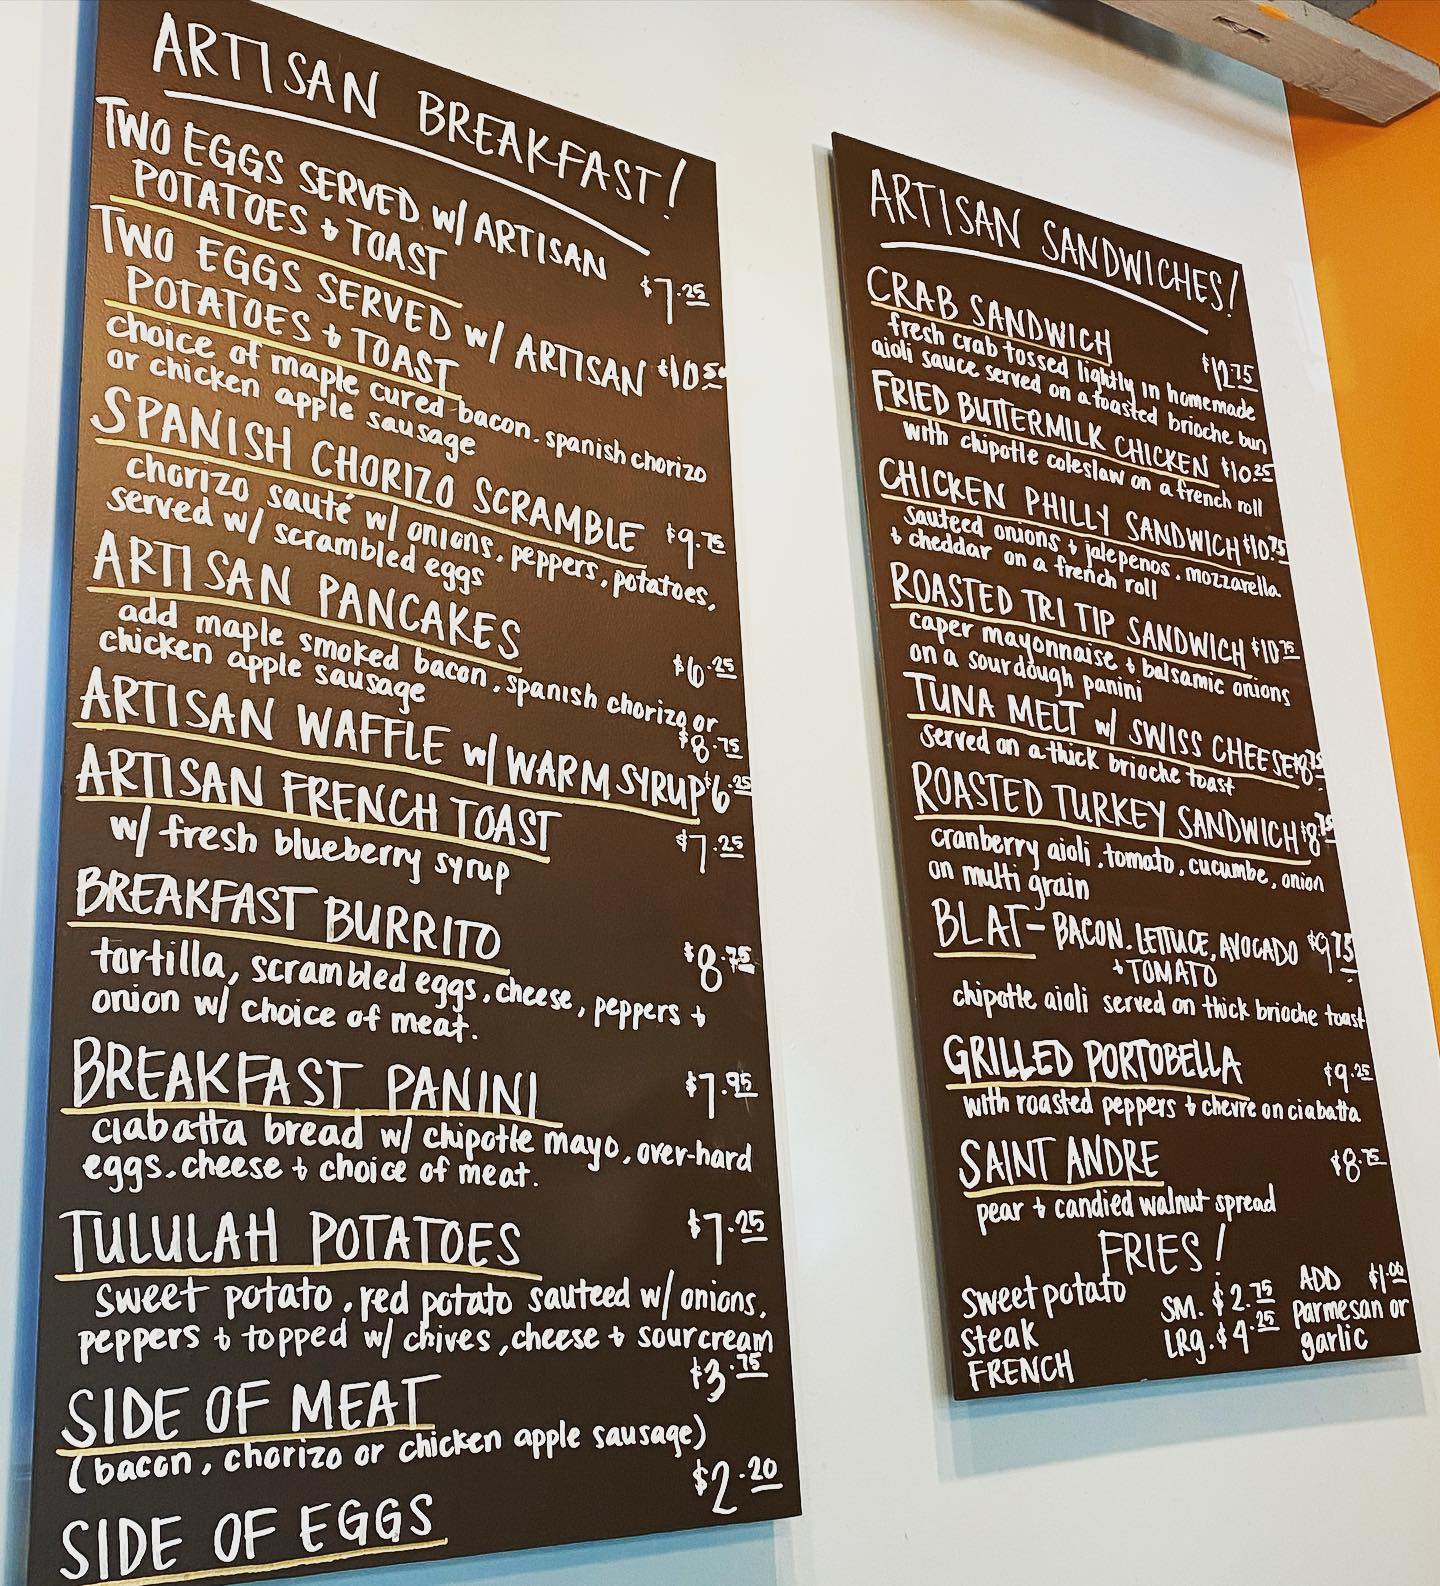 ARTISAN BREAKFAST!
TWO EGGS SERVED w/ ARTISAN
POTATOES + TOAST $7.25
TWO EGGS SERVED w/ ARTISAN
POTATOES + TOAST $10.50
choice of maple cured bacon, spanish chorizo
or chicken apple sausage
SPANISH CHORIZO SCRAMBLE $9.75
chorizo sauté w/ onions, peppers, potatoes,
served w/ scrambled eggs
ARTISAN PANCAKES $6.25
add maple smoked bacon, spanish chorizo or
chicken apple sausage $8.75
ARTISAN WAFFLE w/ WARM SYRUP $6.25
ARTISAN FRENCH TOAST $7.25
w/ fresh blueberry syrup
BREAKFAST BURRITO $8.75
tortilla, scrambled eggs, cheese, peppers +
onion w/ choice of meat.
BREAKFAST PANINI $7.95
ciabatta bread w/ chipotle mayo, over-hard
eggs, cheese + choice of meat.
TULULAH POTATOES $7.25
sweet potato, red potato sauteed w/ onions,
peppers + topped w/ chives, cheese + sour cream
SIDE OF MEAT $3.75
(bacon, chorizo or chicken apple sausage)
SIDE OF EGGS $2.20
ARTISAN SANDWICHES!
CRAB SANDWICH $12.75
fresh crab tossed lightly in homemade
aioli sauce served on a toasted brioche bun
FRIED BUTTERMILK CHICKEN $10.25
with chipotle coleslaw on a french roll
CHICKEN PHILLY SANDWICH $10.75
sauteed onions + jalepenos, mozzarella
+ cheddar on a french roll
ROASTED TRI TIP SANDWICH $10.75
caper mayonnaise + balsamic onions
on a sourdough panini
TUNA MELT w/ SWISS CHEESE $8.75
served on a thick brioche toast
ROASTED TURKEY SANDWICH $8.75
cranberry aioli, tomato, cucumbe, onion
on multi grain
BLAT - BACON, LETTUCE, AVOCADO $9.75
+ TOMATO
chipotle aioli served on thick brioche toast
GRILLED PORTOBELLA $9.25
with roasted peppers + chevre on ciabatta
SAINT ANDRE $8.75
pear + candied walnut spread
FRIES!
sweet potato SM. $2.75 ADD $1.00
steak LRg. $4.25 parmesan or
FRENCH garlic